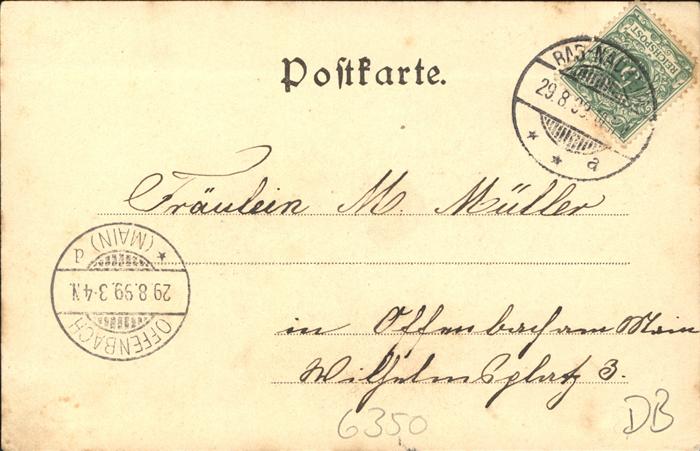 REICHSPOST
Postkarte.
BAD NAU
29.8.99.
a
Fräulein M. Müller
OFFENBACH
29.8.99.3-4N.
(MAIN) d
in Offenbach am Main
Wilhelmsplatz 3.
6350
DB